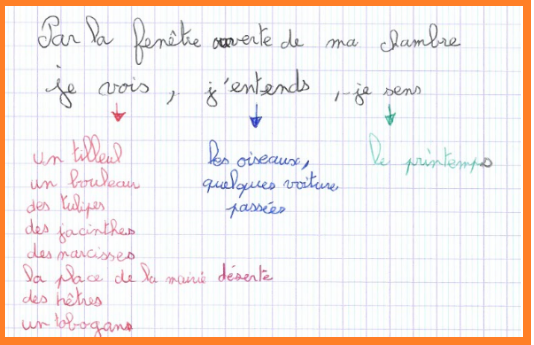 Par la fenêtre ouverte de ma chambre
je vois, j'entends, je sens
un tilleul
un bouleau
des tulipes
des jacinthes
des narcisses
la place de la mairie déserte
des hêtres
un tobogans
les oiseaux,
quelques voiture
passées
le printemps